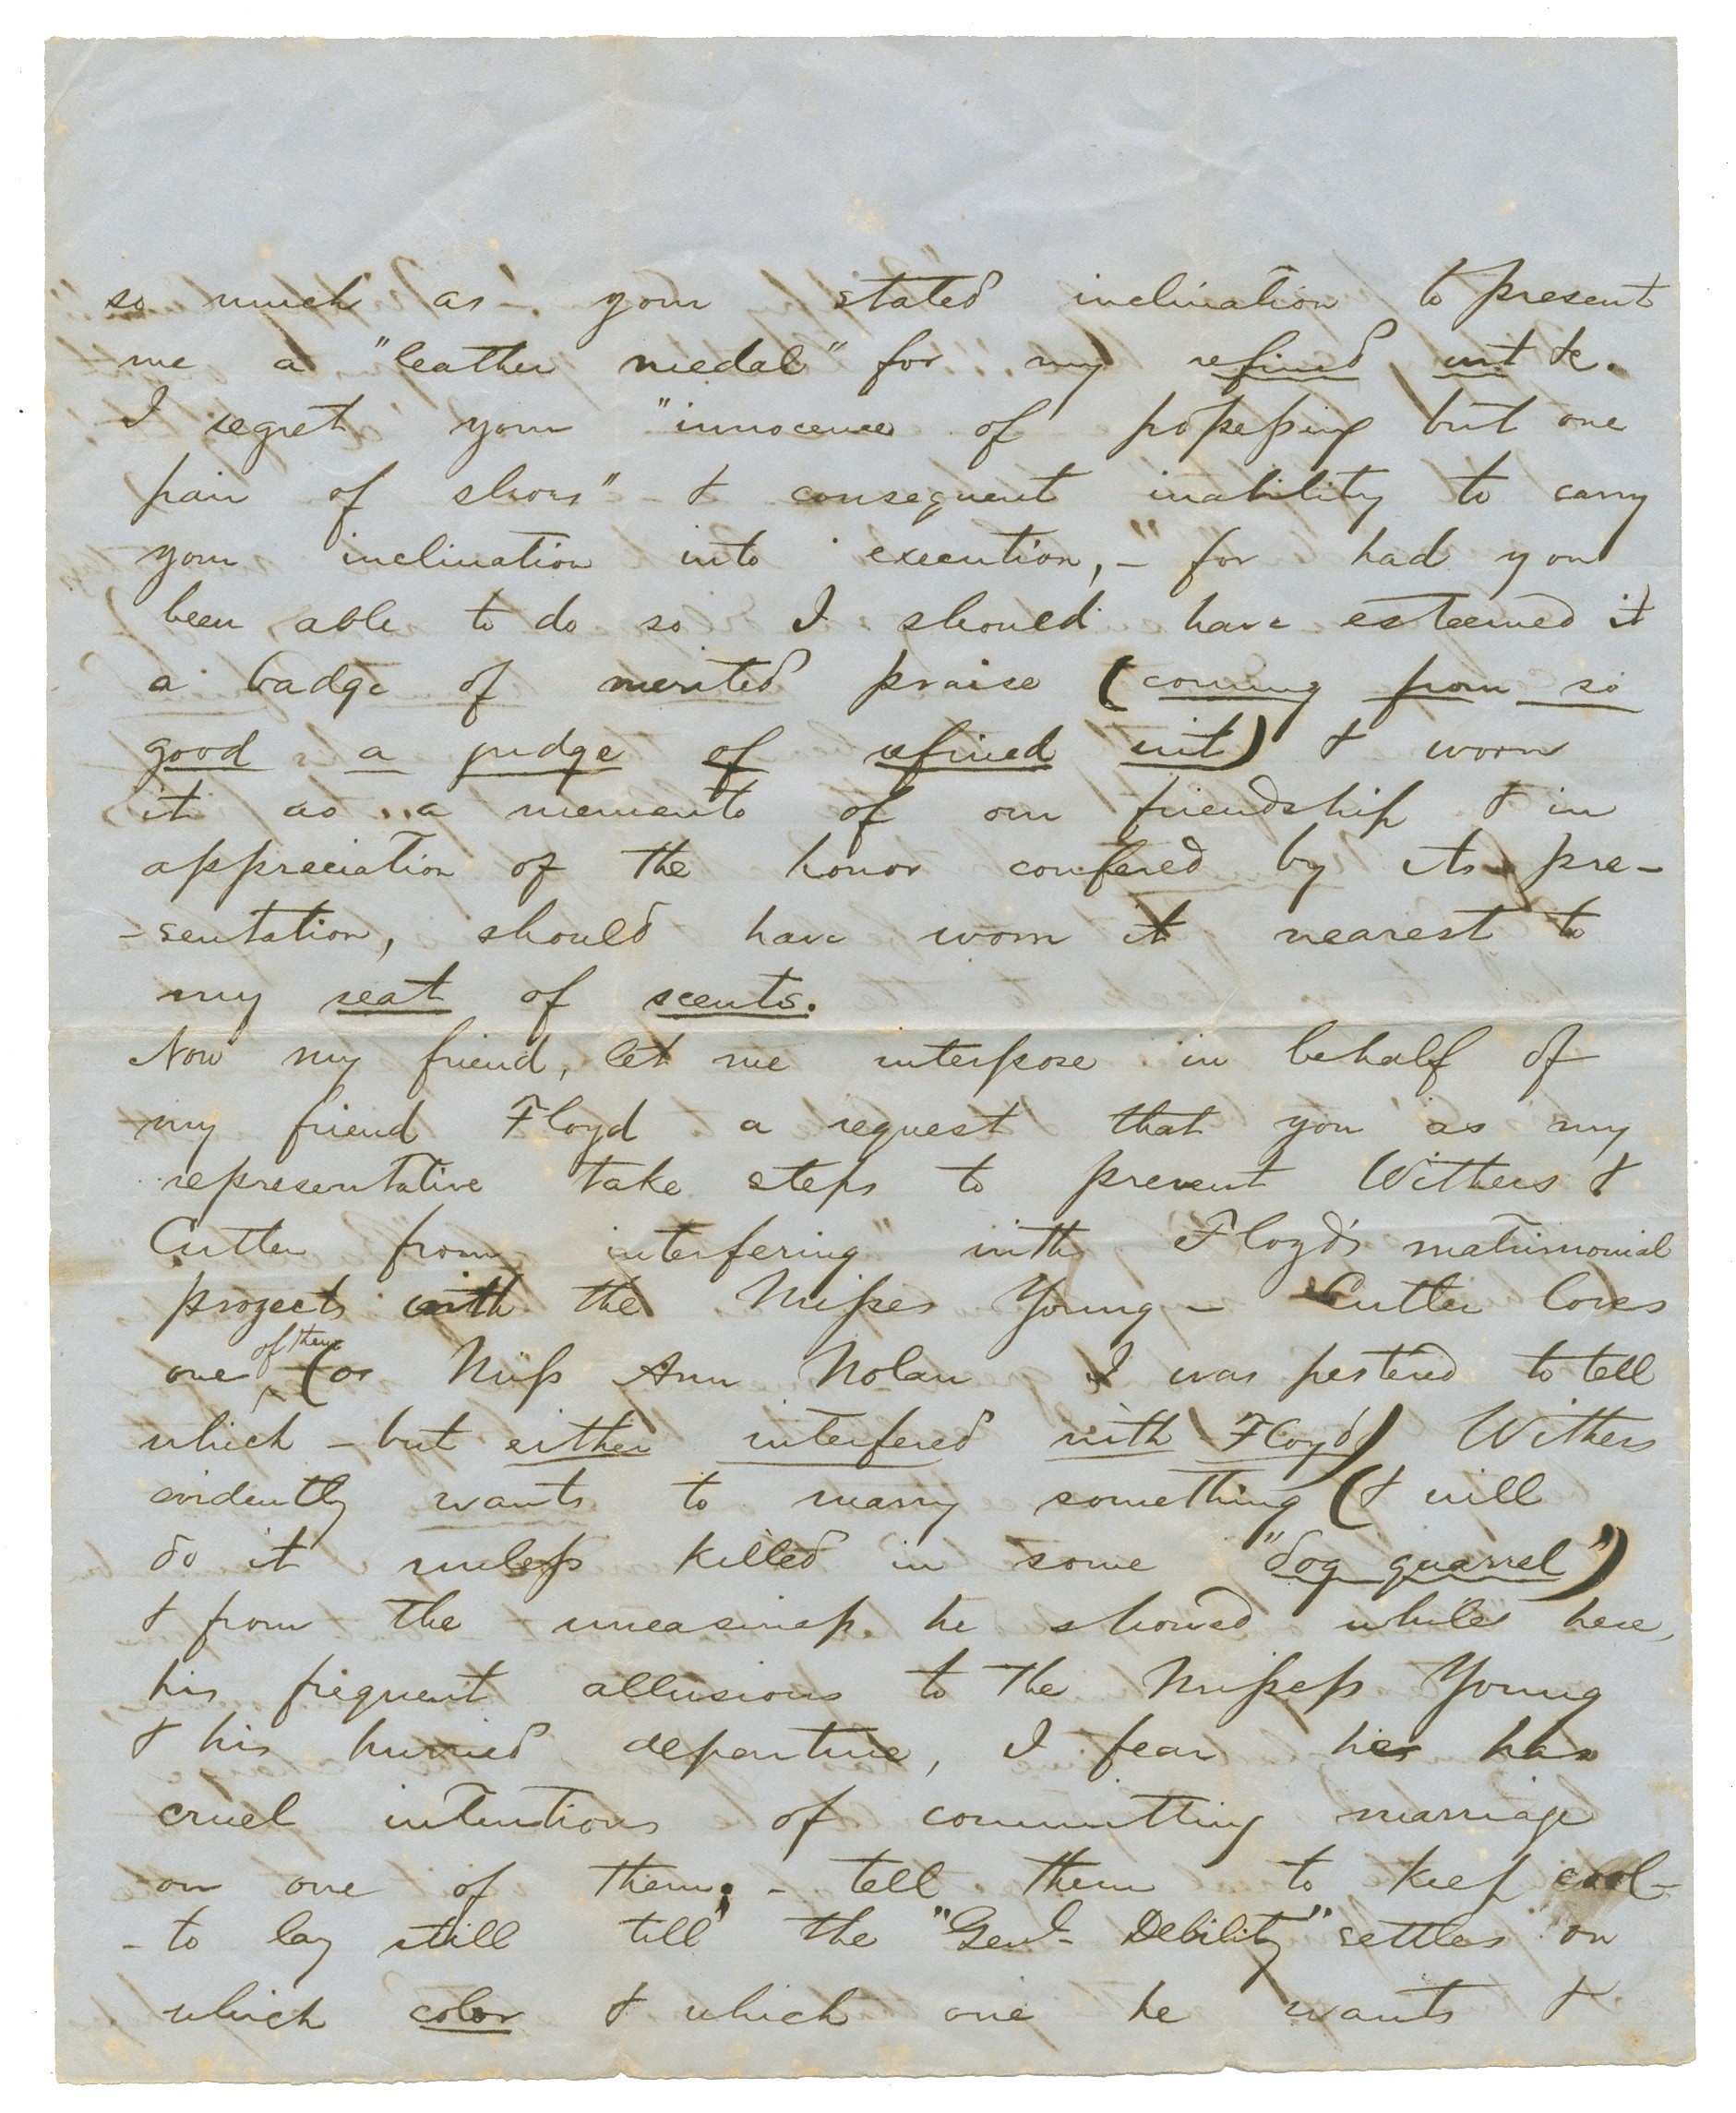 so much as your stated inclination to present
me a "leather medal" for my refined wit &c.
I regret your "innocence of possessing but one
pair of shoes" & consequent inability to carry
your inclination into "execution," – for had you
been able to do so I should have esteemed it
a badge of merited praise (coming from so
good a judge of refined wit) & worn
it as a memento of our friendship & in
appreciation of the honor confered by its pre-
-sentation, should have worn it nearest to
my seat of scents.
Now my friend, let me interpose in behalf of
my friend Floyd a request that you as my
representative take steps to prevent Withers &
Cutler from "interfering" with Floyd's matrimonial
projects with the Misses Young – Cutler loves
one of them (or Miss Ann Nolan I was pestered to tell
which – but either interfered with Floyd) Withers
evidently wants to marry something (& will
do it unless killed in some "dog quarrel")
& from the uneasiness he showed while here,
his frequent allusions to the Misses Young
& his hurried departure, I fear he has
cruel intentions of committing marriage
on one of them; – tell them to keep cool –
– to lay still till the "Genl. Debility" settles on
which color & which one he wants &